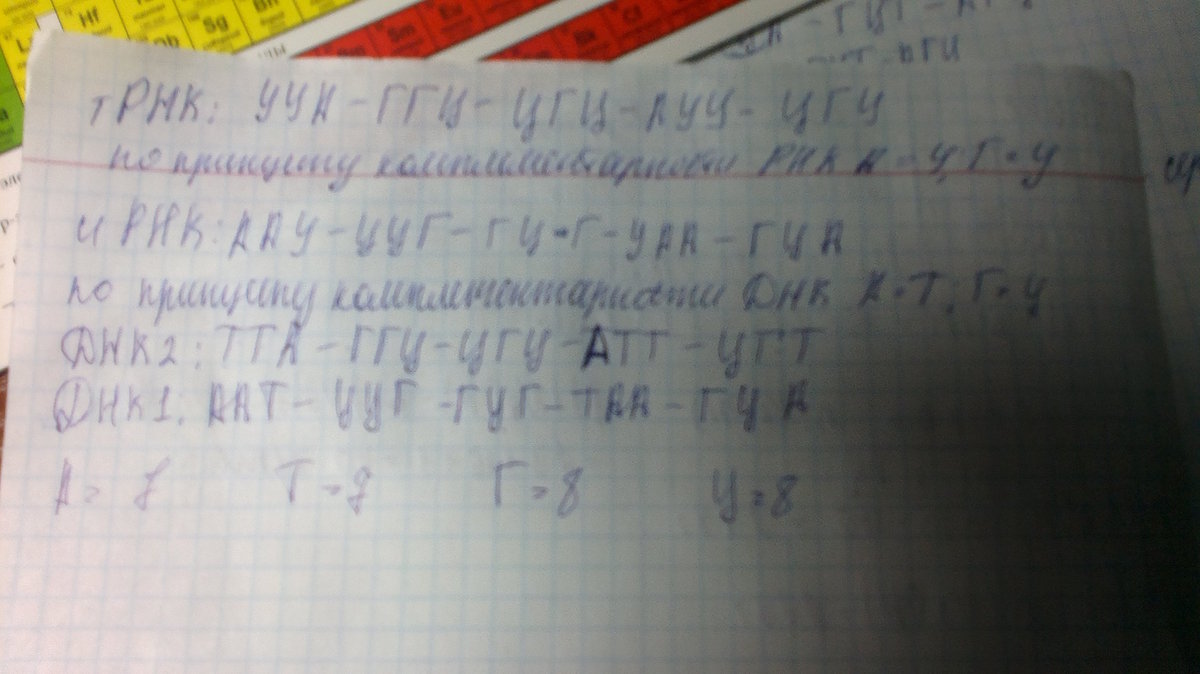 Hf
Sg
Bh
Sm
Eu
тРНК: УУА - ГГЦ - ЦГЦ - АУУ - ЦГУ
по принципу комплиментарности РНК А = У, Г = Ц
и РНК: ААУ - ЦЦГ - ГЦ - Г - УАА - ГЦА
по принципу комплементарности ДНК А = Т, Г = Ц
ДНК 2: ТТА - ГГЦ - ЦГЦ - АТТ - ЦГТ
ДНК 1. ААТ - ЦЦГ - ГЦГ - ТАА - ГЦА
А = 7 Т = 7 Г = 8 Ц = 8